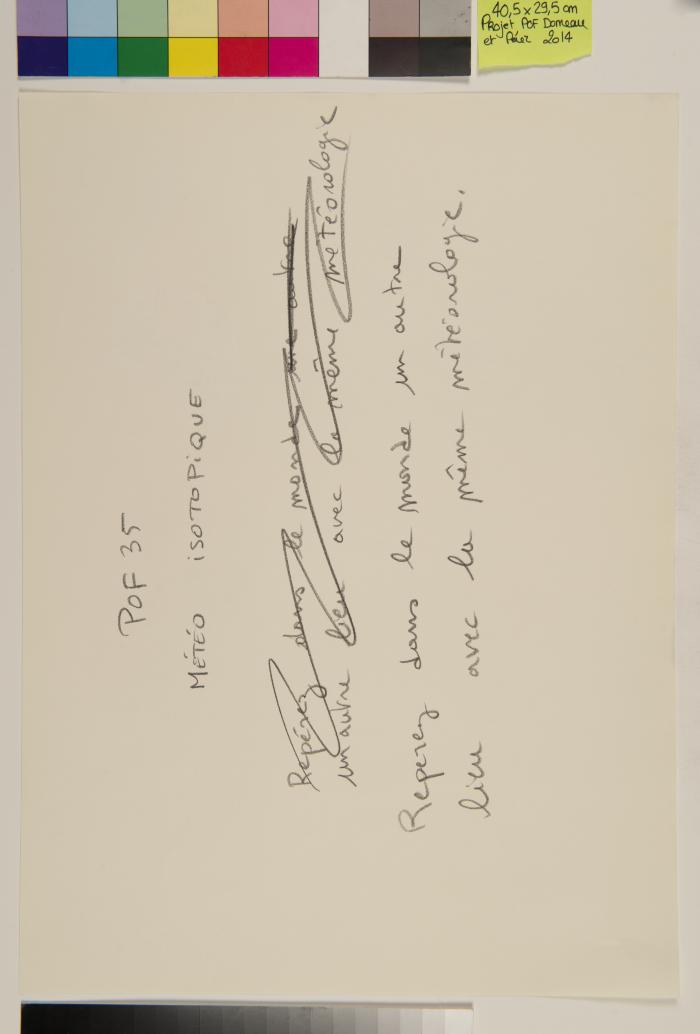 40,5 x 29,5 cm
Projet POF Domeau
et Pérez 2014
POF 35
MÉTÉO ISOTOPIQUE
Repérez dans le monde une autre
un autre lieu avec la même météorologie
Reperez dans le monde un autre
lieu avec la même météorologie.